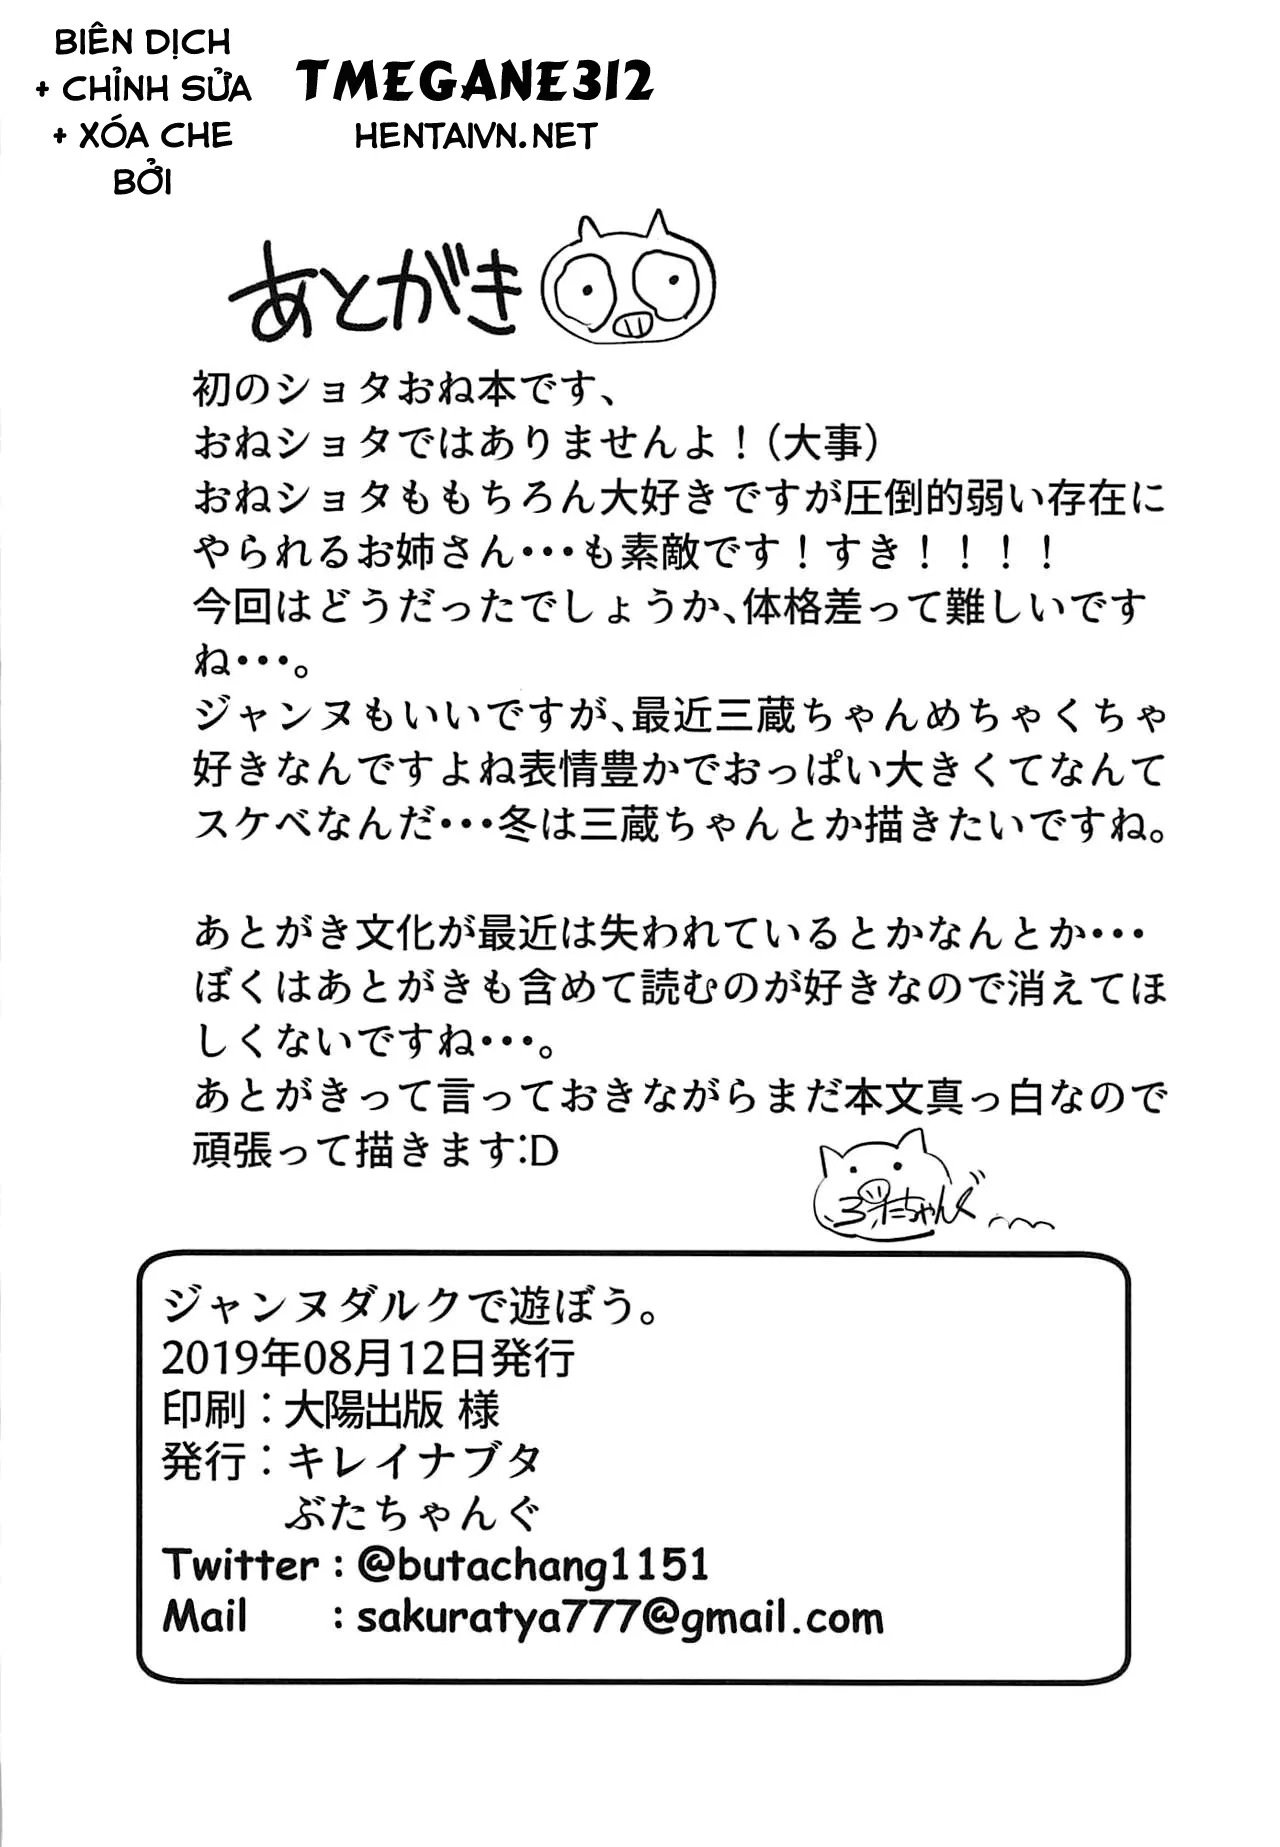 BIÊN DỊCH
+ CHỈNH SỬA
+ XÓA CHE
BỞI
TMEGANE312
HENTAIVN.NET
あとがき
初のショタおね本です、
おねショタではありませんよ！（大事）
おねショタももちろん大好きですが圧倒的弱い存在に
やられるお姉さん・・・も素敵です！すき！！！！
今回はどうだったでしょうか、体格差って難しいです
ね・・・。
ジャンヌもいいですが、最近三蔵ちゃんめちゃくちゃ
好きなんですよね表情豊かでおっぱい大きくてなんて
スケベなんだ・・・冬は三蔵ちゃんとか描きたいですね。
あとがき文化が最近は失われているとかなんとか・・・
ぼくはあとがきも含めて読むのが好きなので消えてほ
しくないですね・・・。
あとがきって言っておきながらまだ本文真っ白なので
頑張って描きます:D
ぶたちゃんぐ
ジャンヌダルクで遊ぼう。
2019年08月12日発行
印刷：大陽出版 様
発行：キレイナブタ
ぶたちゃんぐ
Twitter : @butachang1151
Mail : sakuratya777@gmail.com